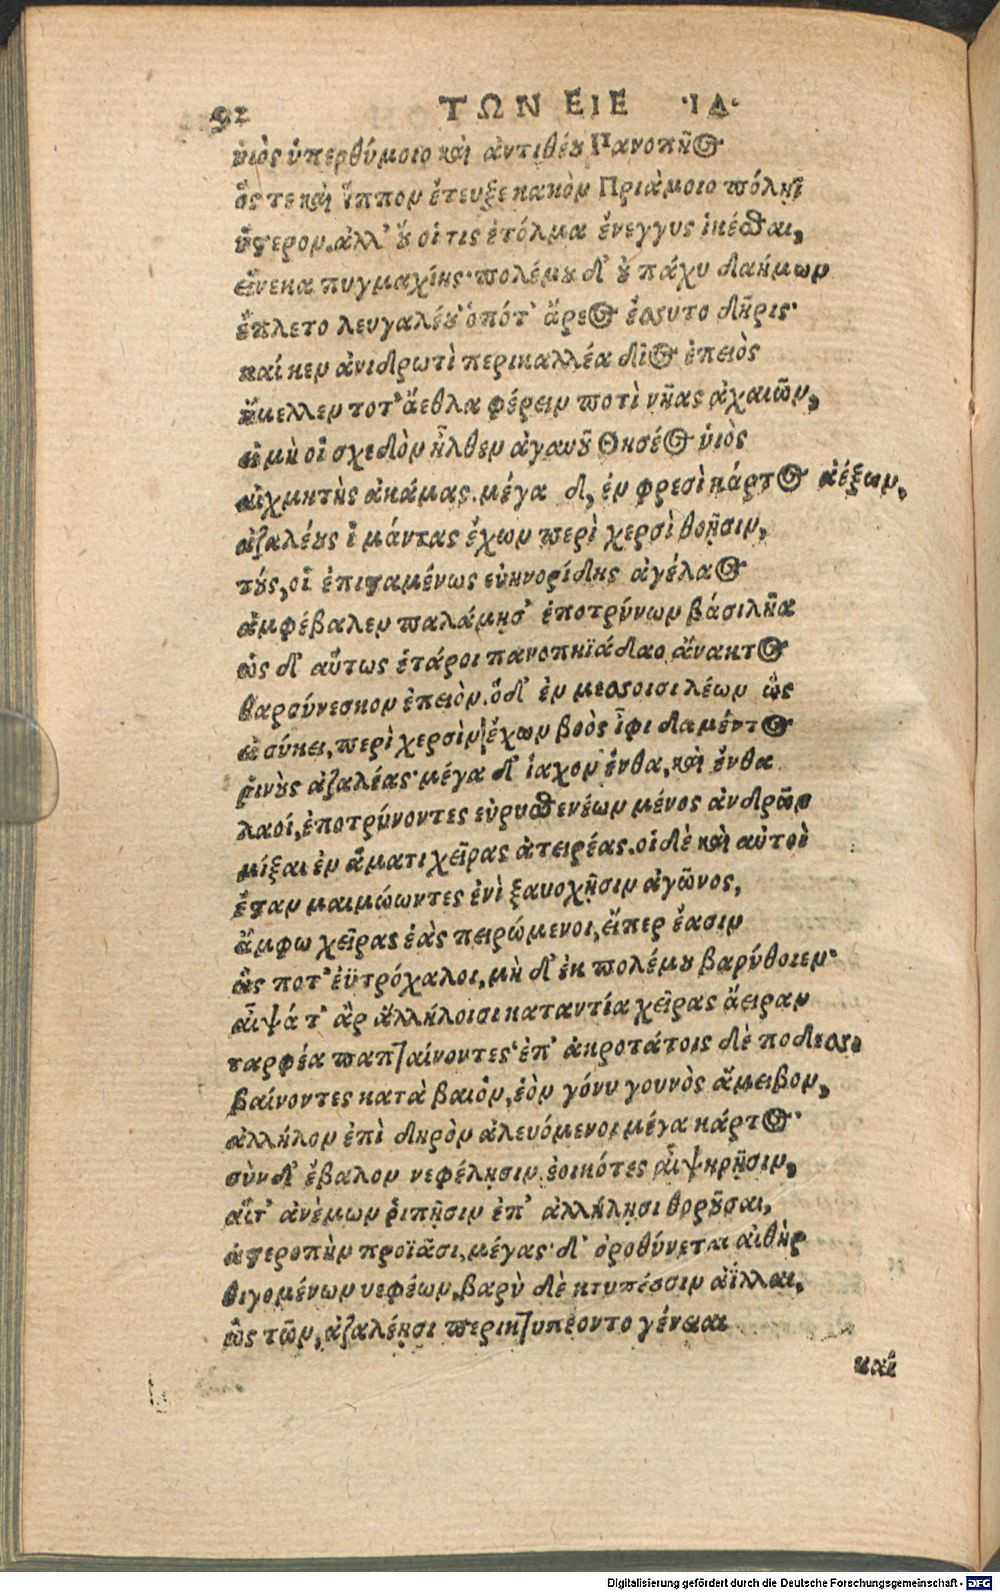 92 ΤΩΝ ΕΙΣ ΙΔ·
ὑιὸς ὑπερθύμοιο καὶ ἀντιθέου Πανοπῆος
ὅς τε καὶ ἵππον ἔτευξε κακὸν Πριάμοιο πόληϊ
ὕστερον. ἀλλ' οὔ οἱ τις ἐτόλμα ἔνεγγυς ἱκέσθαι,
εἵνεκα πυγμαχίης· πολέμου δ' οὐ πάχυ δαήμων
ἔπλετο λευγαλέου ὁπότ' ἄρεος ἔσσυτο δῆρις·
καί κεν ἀνιδρωτὶ περικαλλέα δῖος ἐπειὸς
ἤμελλεν τοτ' ἄεθλα φέρειν ποτὶ νῆας ἀχαιῶν,
εἰ μὴ οἷ σχεδὸν ἦλθεν ἀγαυοῦ Θησέος ὑιὸς
αἰχμητὴς ἀκάμας. μέγα δ, ἐν φρεσὶ κάρτος ἀέξων,
ἀζαλέους ἱμάντας ἔχων περὶ χερσὶ θοῇσιν,
τούς, οἷ ἐπισταμένως εὐηνορίδης ἀγέλαος
ἀμφέβαλεν παλάμῃσ' ἐποτρύνων βάσιλῆα
ὡς δ' αὔτως ἑτάροι πανοπηϊάδαο ἄνακτος
θαρσύνεσκον ἐπειὸν. ὅδ' ἐν μεσσοισι λέων ὣς
εἱσύκει, περὶ χερσὶν ἔχων βοὸς ἶφι δαμέντος
ῥινοὺς ἀζαλέας· μέγα δ' ἴαχον ἔνθα, καὶ ἔνθα
λαοί, ἐποτρύνοντες εὐρυσθενέων μένος ἀνδρῶν
μίξαι ἐν αἵματι χεῖρας ἀτειρέας. οἱ δὲ καὶ αὐτοὶ
ἔσταν μαιμώωντες ἐνὶ ξαυοχῇσιν ἀγῶνος,
ἄμφω χεῖρας ἑὰς πειρώμενοι, εἴπερ ἔασιν
ὣς ποτ' ἐϋτρόχαλοι, μὴ δ' ἐκ πολέμου βαρύθοιεν·
αἶψά τ' ἂρ ἀλλήλοισι καταντία χεῖρας ἄειραν
ταρφέα παπταίνοντες· ἐπ' ἀκροτάτοις δὲ πόδεσσι
βαίνοντες κατὰ βαιὸν, ἐὸν γόνυ γουνὸς ἄμειβον,
ἀλλήλον ἐπὶ δηρὸν ἀλευόμενοι μέγα κάρτος·
σὺν δ' ἔβαλον νεφέλῃσιν ἐοικότες αἰψηρῇσιν,
αἵτ' ἀνέμων ῥιπῇσιν ἐπ' ἀλλήλῃσι θοροῦσαι,
ἀστεροπὴν προϊᾶσι, μέγας δ' ὀροθύνεται αἰθὴρ
θιγομένων νεφέων, βαρὺ δὲ κτυπέσσιν ἀίλλαι,
ὣς τῶν, ἀζαλέῃσι περικτυπέοντο γένειαι
καὶ
Digitalisierung gefördert durch die Deutsche Forschungsgemeinschaft - DFG